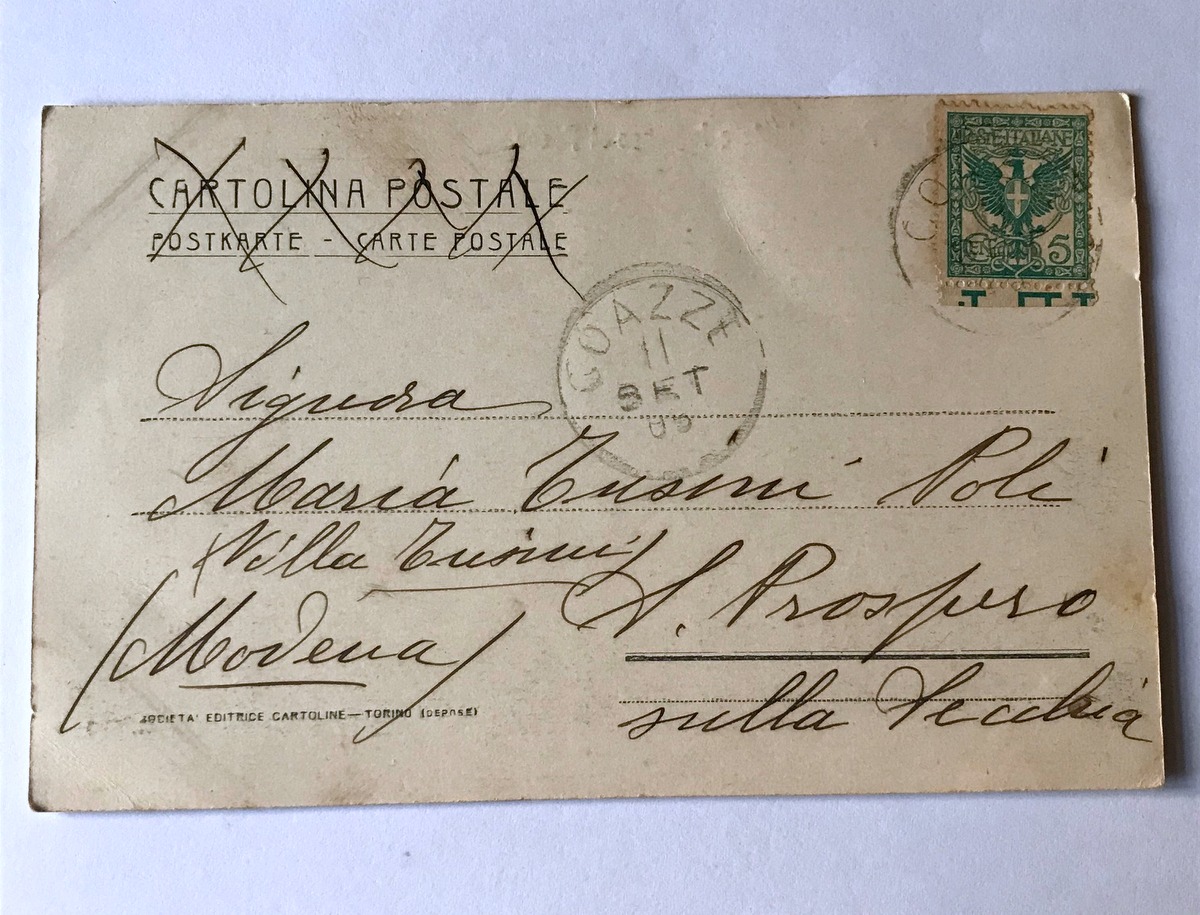 CARTOLINA POSTALE
POSTKARTE - CARTE POSTALE
POSTE ITALIANE
CENT. 5
CO
COAZZE
11
SET
Signora
Maria Tusini Poli
(Villa Tusini)
S. Prospero
(Modena)
sulla Secchia
SOCIETA' EDITRICE CARTOLINE—TORINO (DEPOSÉ)